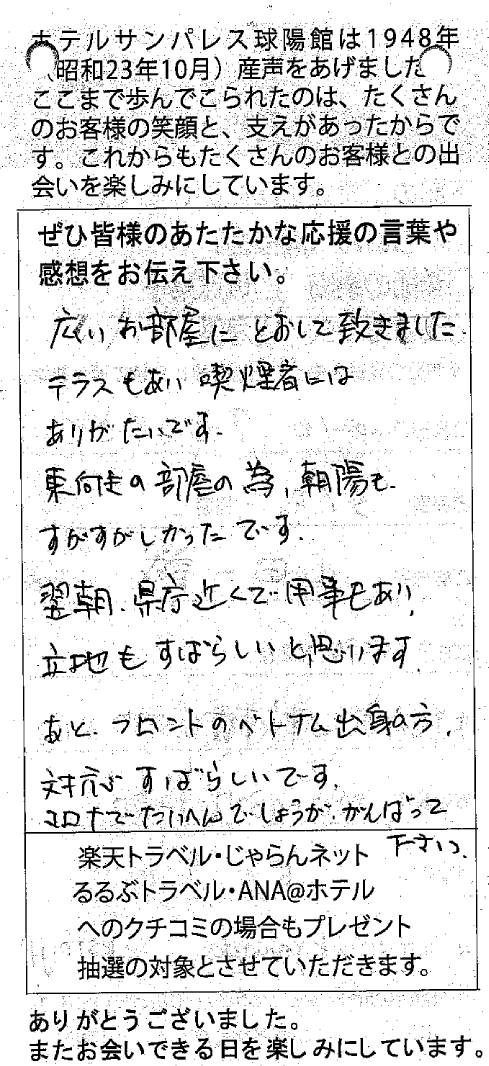 ホテルサンパレス球陽館は1948年
（昭和23年10月）産声をあげました
ここまで歩んでこられたのは、たくさん
のお客様の笑顔と、支えがあったからで
す。これからもたくさんのお客様との出
会いを楽しみにしています。
ぜひ皆様のあたたかな応援の言葉や
感想をお伝え下さい。
広いお部屋にとおして致きました.
テラスもあい喫煙者には
ありがたいです.
東向きの部屋の為,朝陽も
すがすがしかったです.
翌朝、県庁近くで用事もあり,
立地もすばらしいと思います.
あと、フロントのベトナム出身の方,
対応すばらしいです.
コロナでたいへんでしょうが、がんばって
下さい.
楽天トラベル・じゃらんネット
るるぶトラベル・ANA@ホテル
へのクチコミの場合もプレゼント
抽選の対象とさせていただきます。
ありがとうございました。
またお会いできる日を楽しみにしています。